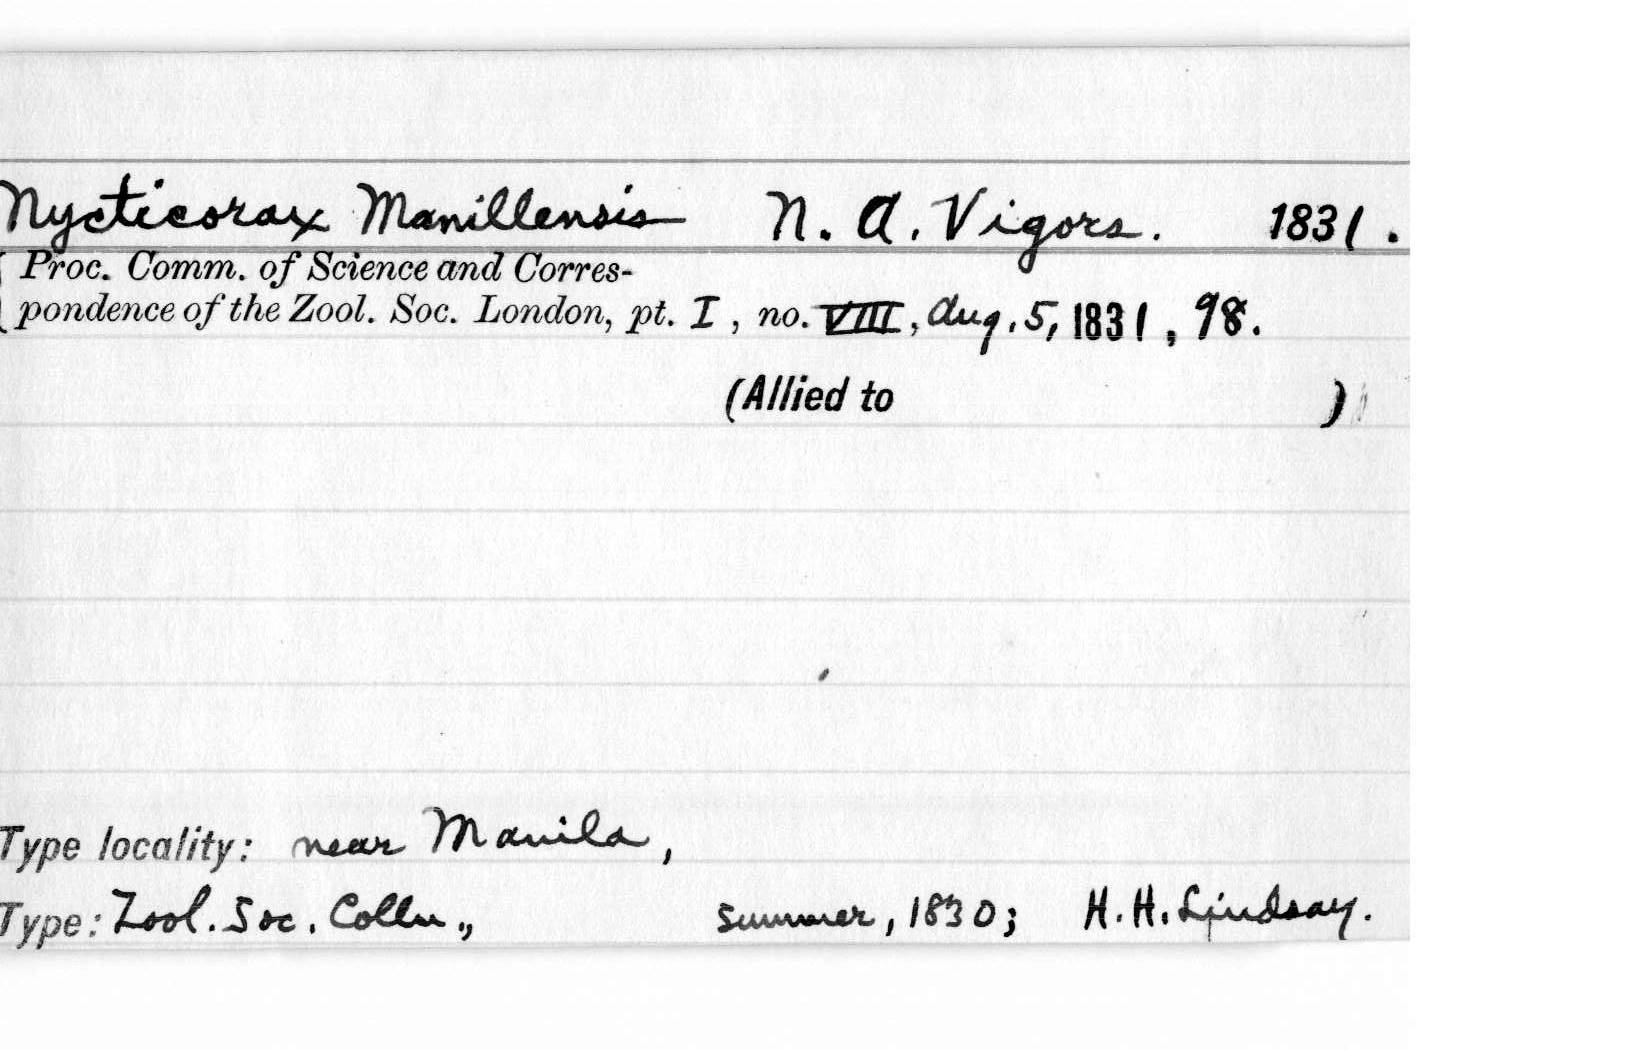 Nycticorax Manillensis N. A. Vigors. 1831.
Proc. Comm. of Science and Corres-
pondence of the Zool. Soc. London, pt. I, no. VIII, Aug. 5, 1831, 98.
(Allied to )
Type locality: near Manila,
Type: Zool. Soc. Colln., summer, 1830; H. H. Lindsay.